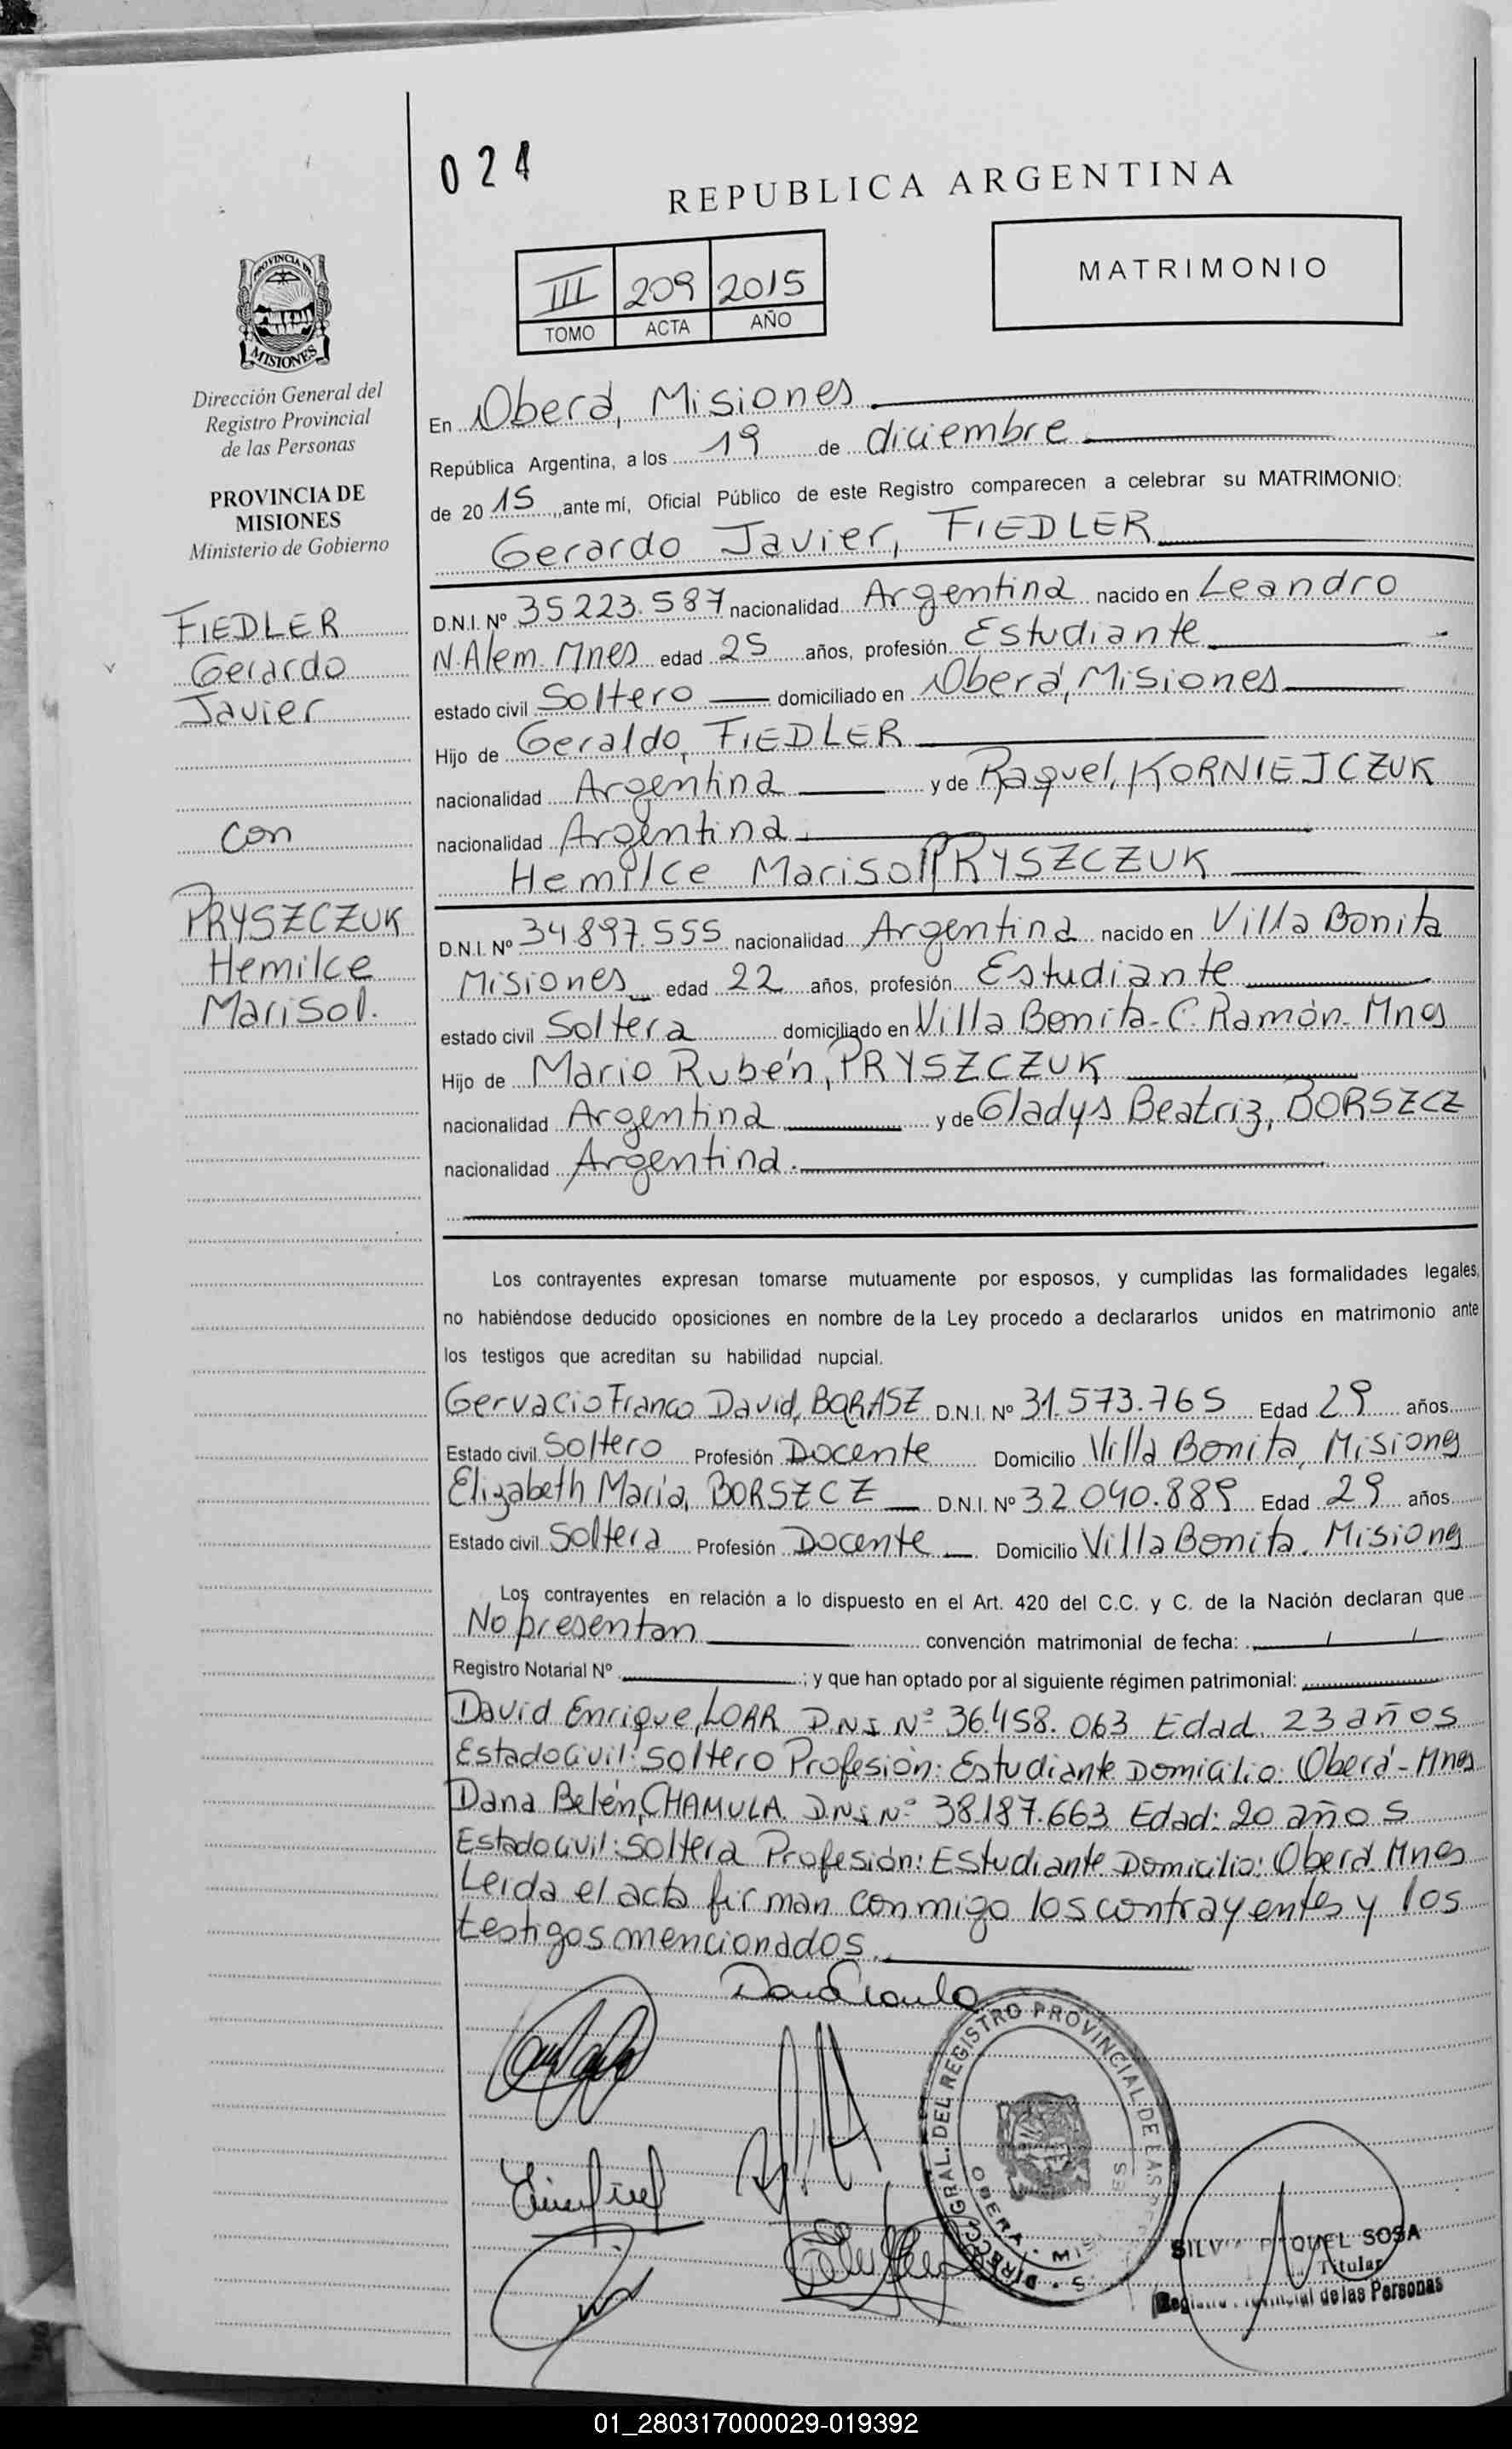 024
REPUBLICA ARGENTINA
III 209 2015
TOMO ACTA AÑO
MATRIMONIO
PROVINCIA DE
MISIONES
Dirección General del
Registro Provincial
de las Personas
PROVINCIA DE
MISIONES
Ministerio de Gobierno
FIEDLER
Gerardo
Javier
con
PRYSZCZUK
Hemilce
Marisol.
En Oberá, Misiones
República Argentina, a los 19 de diciembre
de 2015, ante mí, Oficial Público de este Registro comparecen a celebrar su MATRIMONIO:
Gerardo Javier, FIEDLER
D.N.I. Nº 35223.587 nacionalidad Argentina nacido en Leandro
N. Alem. Mnes edad 25 años, profesión Estudiante
estado civil Soltero domiciliado en Oberá, Misiones
Hijo de Geraldo, FIEDLER
nacionalidad Argentina y de Raquel, KORNIEJCZUK
nacionalidad Argentina.
Hemilce Marisol PRYSZCZUK
D.N.I. Nº 34.897.555 nacionalidad Argentina nacido en Villa Bonita
Misiones edad 22 años, profesión Estudiante
estado civil Soltera domiciliado en Villa Bonita-C. Ramón-Mnes
Hijo de Mario Rubén, PRYSZCZUK
nacionalidad Argentina y de Gladys Beatriz, BORSZCZ
nacionalidad Argentina.
Los contrayentes expresan tomarse mutuamente por esposos, y cumplidas las formalidades legales,
no habiéndose deducido oposiciones en nombre de la Ley procedo a declararlos unidos en matrimonio ante
los testigos que acreditan su habilidad nupcial.
Gervacio Franco David, BORASZ D.N.I. Nº 31.573.765 Edad 29 años
Estado civil Soltero Profesión Docente Domicilio Villa Bonita, Misiones
Elizabeth María, BORSZCZ D.N.I. Nº 32.040.889 Edad 29 años
Estado civil Soltera Profesión Docente Domicilio Villa Bonita. Misiones
Los contrayentes en relación a lo dispuesto en el Art. 420 del C.C. y C. de la Nación declaran que
No presentan convención matrimonial de fecha: / /
Registro Notarial Nº ; y que han optado por al siguiente régimen patrimonial:
David Enrique, LORR D.N.I Nº 36.458.063 Edad. 23 años
Estado Civil: Soltero Profesión: Estudiante Domicilio: Oberá-Mnes
Dana Belén, CHAMULA. D.N.I Nº 38.187.663 Edad: 20 años
Estado Civil: Soltera Profesión: Estudiante Domicilio: Oberá Mnes
Leida el acta firman conmigo los contrayentes y los
testigos mencionados.
DIRECC. GRAL. DEL REGISTRO PROVINCIAL DE LAS
OBERA
SOSA
Titular
de las Personas
01_280317000029-019392